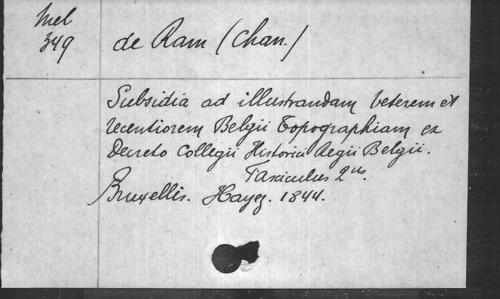 Mel
349
de Ram (Chan.)
Subsidia ad illustrandam veterem et
recentiorem Belgii Topographiam ex
Decreto Collegii Historici Regii Belgii.
Fasciculus 2us.
Bruxellis. Hayez. 1844.